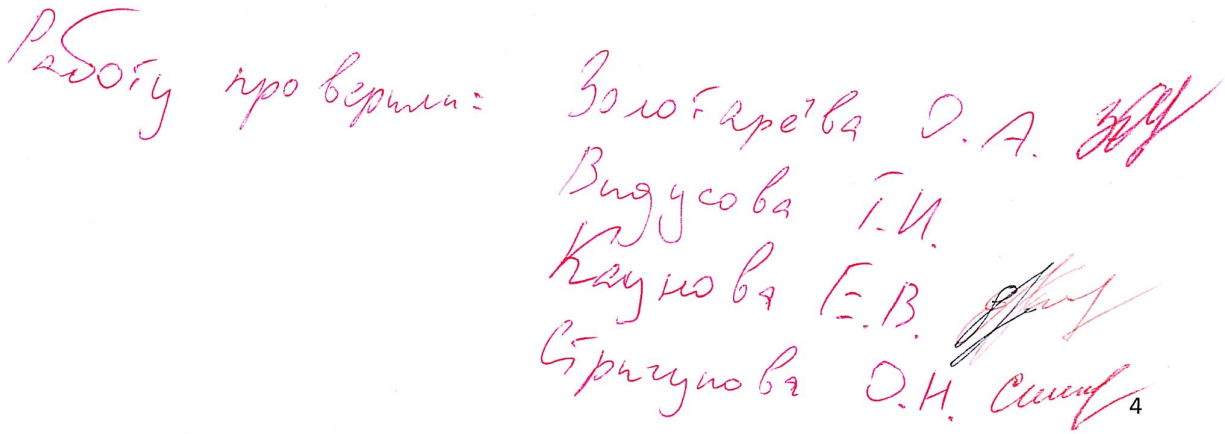 Работу проверили: Золотарёва О.А.
Видусова Т.И.
Каунова Е.В.
Стригунова О.Н.
4